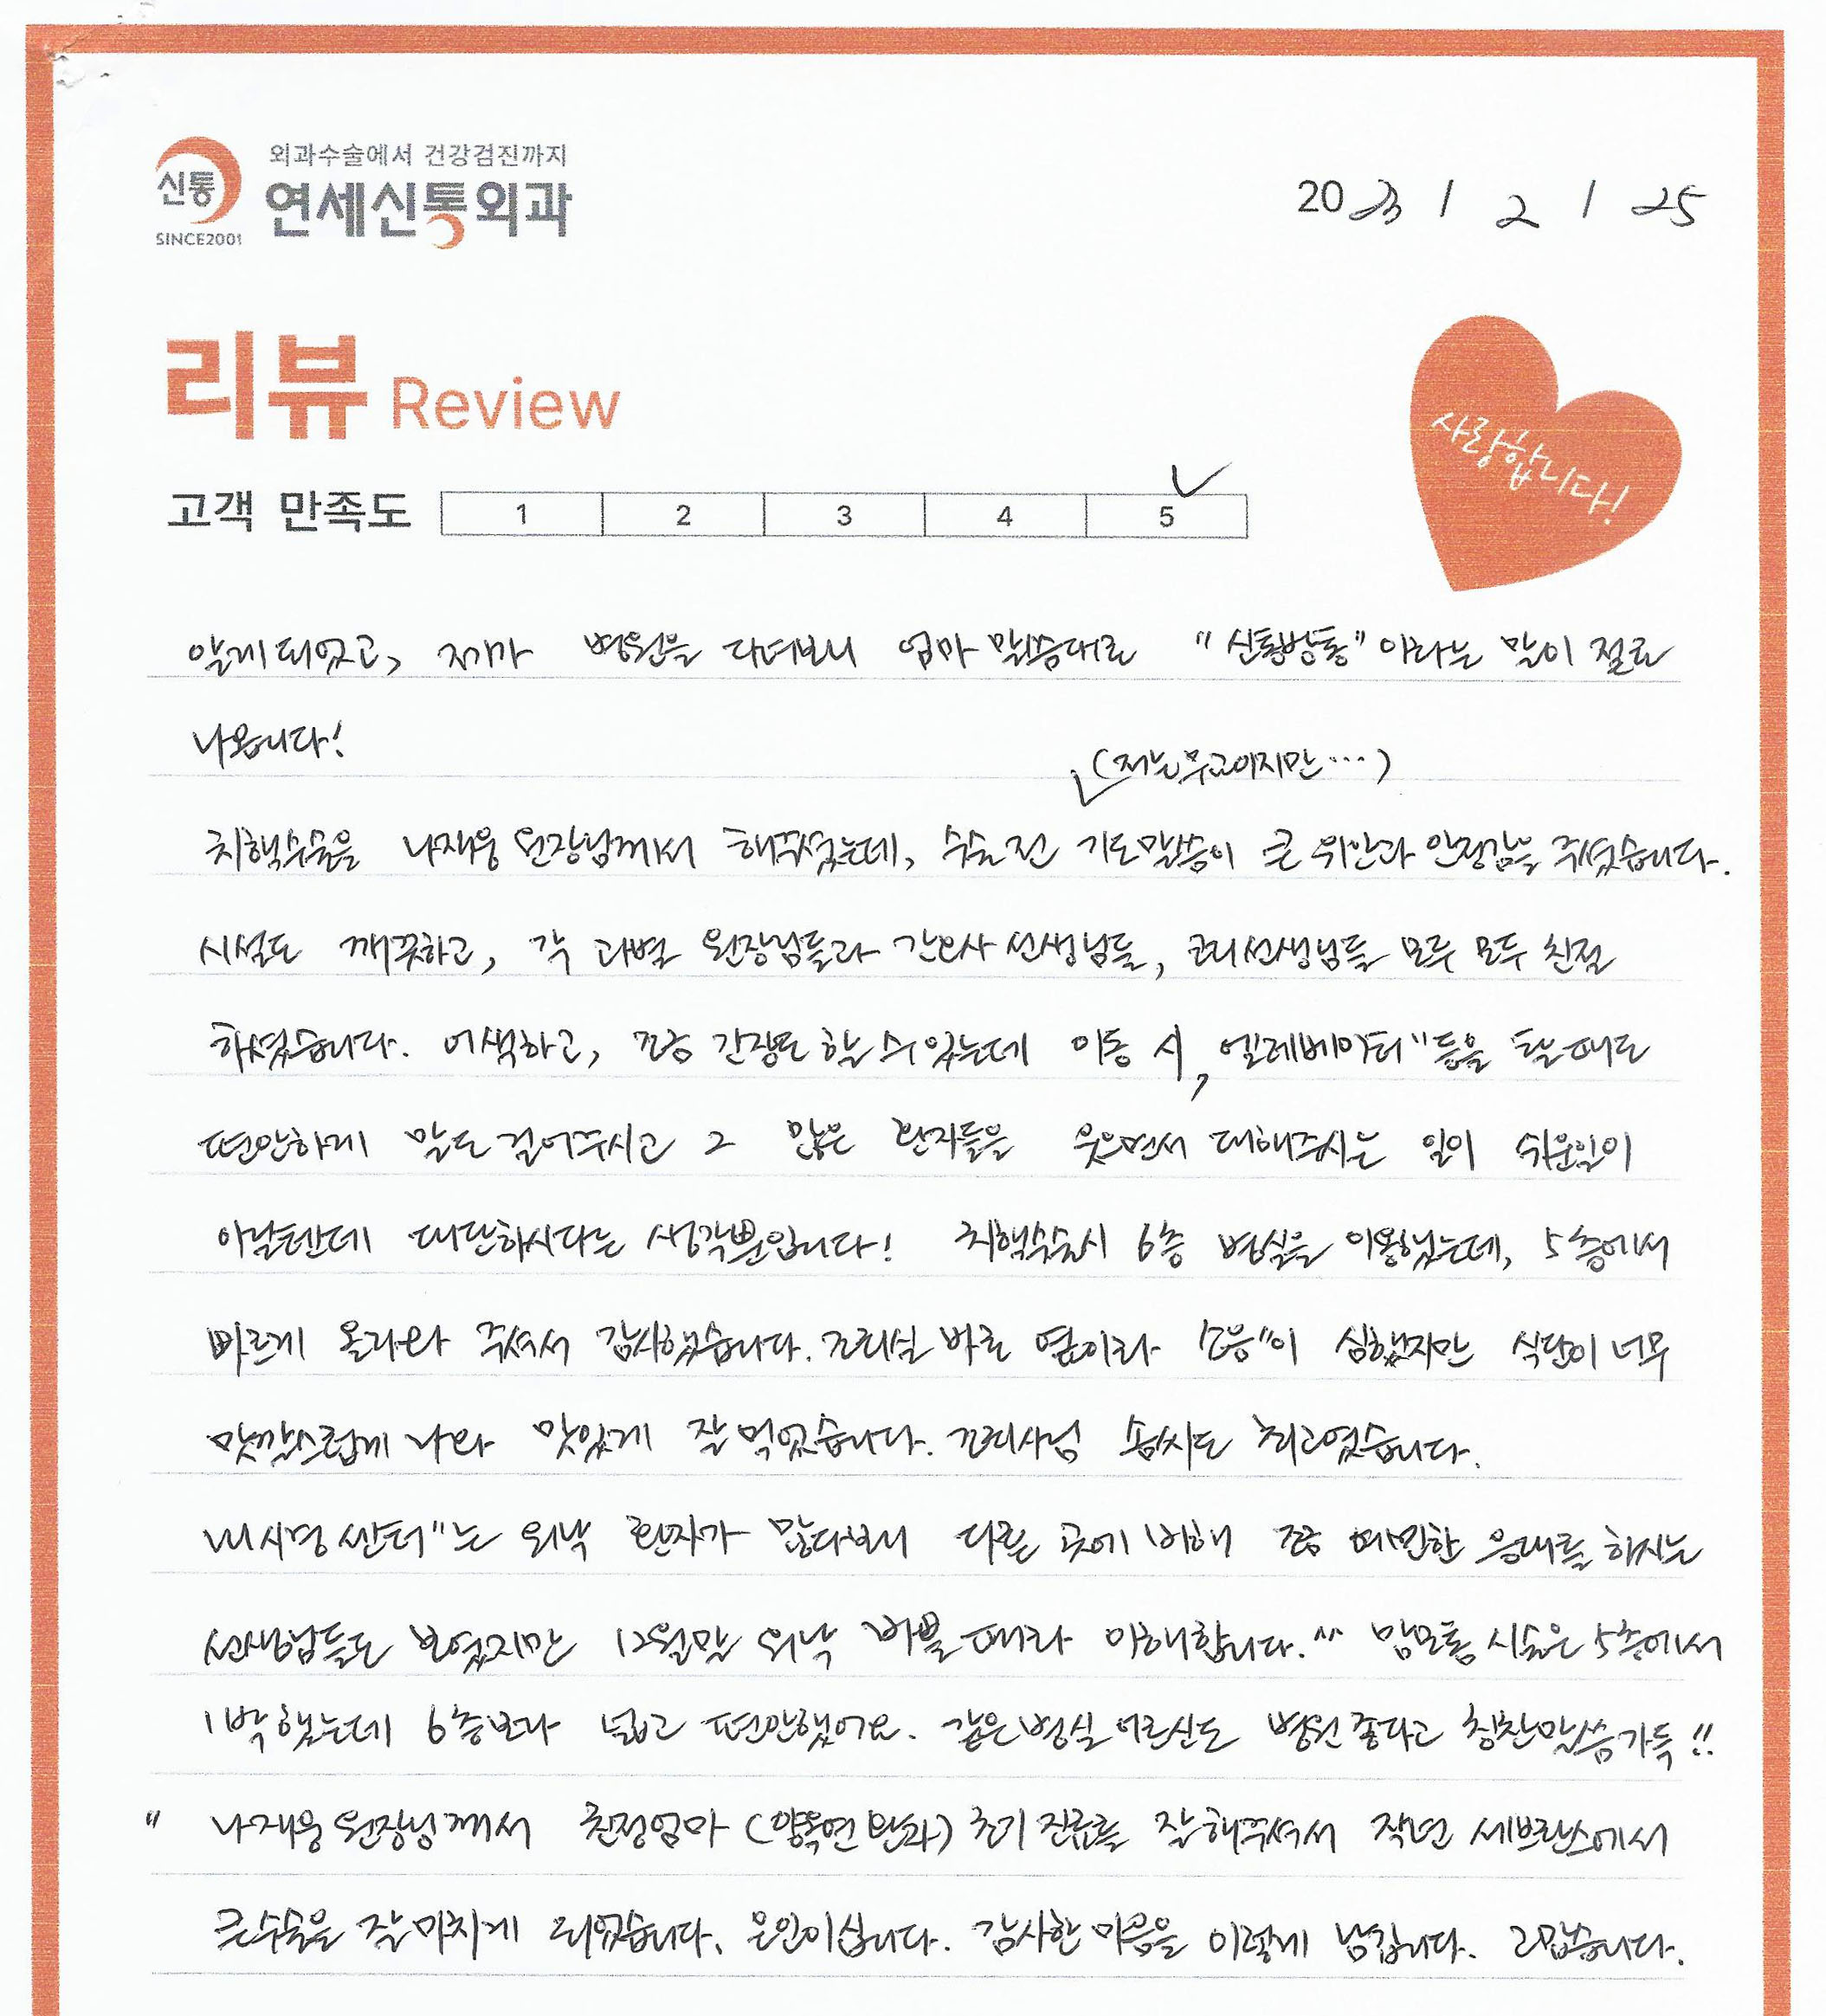 신통
SINCE2001
외과수술에서 건강검진까지
연세신통외과
2023 / 2 / 25
리뷰 Review
사랑합니다!
고객 만족도 1 2 3 4 5
알게 되었고, 제가 병원을 다녀보니 엄마 말씀대로 "신통방통" 이라는 말이 절로
나옵니다!
(저는 무교이지만…)
치핵수술을 나재웅 원장님께서 해주셨는데, 수술 전 기도말씀이 큰 위안과 안정감을 주셨습니다.
시설도 깨끗하고, 각 과별 원장님들과 간호사 선생님들, 코디선생님들 모두 모두 친절
하셨습니다. 어색하고, 조금 긴장도 할 수 있는데 이동 시, 엘레베이터"등을 탈때도
편안하게 말도 걸어주시고 그 많은 환자들을 웃으면서 대해주시는 일이 쉬운일이
아닐텐데 대단하시다는 생각뿐입니다! 치핵수술시 6층 병실을 이용했는데, 5층에서
빠르게 올라와 주셔서 감사했습니다. 조리실 바로 옆이라 소음"이 심했지만 식단이 너무
맛깔스럽게 나와 맛있게 잘 먹었습니다. 조리사님 솜씨도 최고였습니다.
내시경 센터"는 워낙 환자가 많다보니 다른 곳에 비해 조금 예민한 응대를 하시는
선생님들도 보였지만 12월말 워낙 바쁠 때라 이해합니다.^^ 맘모톰 시술은 5층에서
1박 했는데 6층보다 넓고 편안했어요. 같은병실 어르신도 병원 좋다고 칭찬말씀가득!!
" 나재웅 원장님께서 친정엄마 (양옥연 환자) 초기 진료를 잘 해주셔서 작년 세브란스에서
큰수술을 잘 마치게 되었습니다. 은인이십니다. 감사한 마음을 이렇게 남깁니다. 고맙습니다.